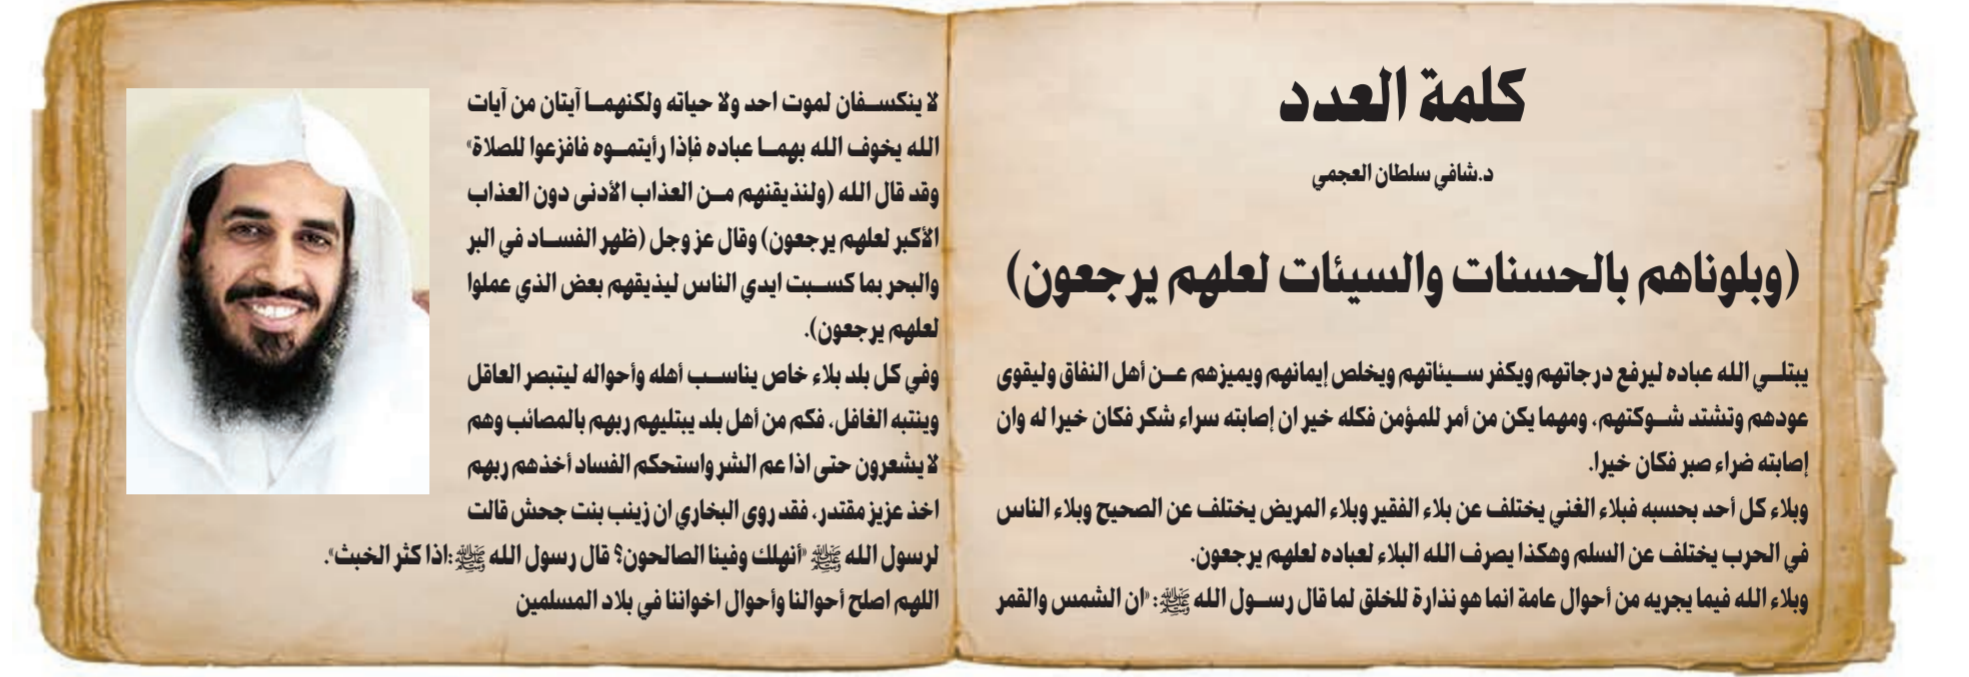 كلمة العدد
د.شافي سلطان العجمي
(وبلوناهم بالحسنات والسيئات لعلهم يرجعون)
يبتلي الله عباده ليرفع درجاتهم ويكفر سيئاتهم ويخلص إيمانهم ويميزهم عن أهل النفاق وليقوى
عودهم وتشتد شوكتهم. ومهما يكن من أمر للمؤمن فكله خير ان إصابته سراء شكر فكان خيرا له وان
إصابته ضراء صبر فكان خيرا.
وبلاء كل أحد بحسبه فبلاء الغني يختلف عن بلاء الفقير وبلاء المريض يختلف عن الصحيح وبلاء الناس
في الحرب يختلف عن السلم وهكذا يصرف الله البلاء لعباده لعلهم يرجعون.
وبلاء الله فيما يجريه من أحوال عامة انما هو نذارة للخلق لما قال رسول الله ﷺ: «ان الشمس والقمر
لا ينكسفان لموت احد ولا حياته ولكنهما آيتان من آيات
الله يخوف الله بهما عباده فإذا رأيتموه فافزعوا للصلاة»
وقد قال الله (ولنذيقنهم من العذاب الأدنى دون العذاب
الأكبر لعلهم يرجعون) وقال عز وجل (ظهر الفساد في البر
والبحر بما كسبت ايدي الناس ليذيقهم بعض الذي عملوا
لعلهم يرجعون).
وفي كل بلد بلاء خاص يناسب أهله وأحواله ليتبصر العاقل
وينتبه الغافل. فكم من أهل بلد يبتليهم ربهم بالمصائب وهم
لا يشعرون حتى اذا عم الشر واستحكم الفساد أخذهم ربهم
اخذ عزيز مقتدر. فقد روى البخاري ان زينب بنت جحش قالت
لرسول الله ﷺ «أنهلك وفينا الصالحون؟ قال رسول الله ﷺ :اذا كثر الخبث».
اللهم اصلح أحوالنا وأحوال اخواننا في بلاد المسلمين